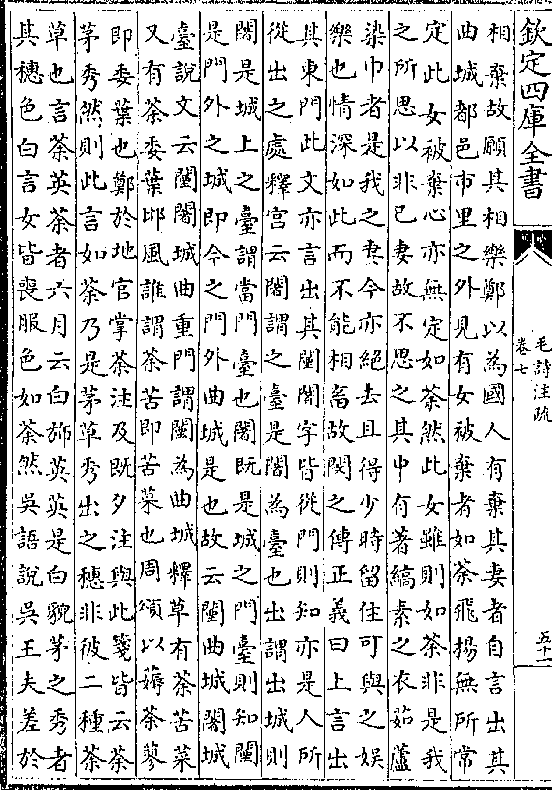 欽定四庫全書
毛詩注疏
卷七
五十二
相棄故願其相樂鄭以為國人有棄其妻者自言出其
曲城都邑市里之外見有女被棄者如荼飛揚無所常
定此女被棄心亦無定如荼然此女雖則如荼非是我
之所思以非已妻故不思之其中有著縞素之衣茹藘
染巾者是我之妻今亦絕去且得少時留住可與之娛
樂也情深如此而不能相畜故閔之傳正義曰上言出
其東門此文亦言出其闉闍字皆從門則知亦是人所
從出之處釋宫云闍謂之臺是闍為臺也出謂出城則
闍是城上之臺謂當門臺也闍既是城之門臺則知闉
是門外之城即今之門外曲城是也故云闉曲城闍城
臺說文云闉闍城曲重門謂闉為曲城釋草有荼苦菜
又有荼委葉邶風誰謂荼苦即苦菜也周頌以薅荼蓼
即委葉也鄭於地官掌荼注及既夕注與此箋皆云荼
茅秀然則此言如荼乃是茅草秀出之穗非彼二種荼
草也言荼英荼者六月云白斾英英是白貌茅之秀者
其穗色白言女皆喪服色如荼然吳語說吳王夫差於